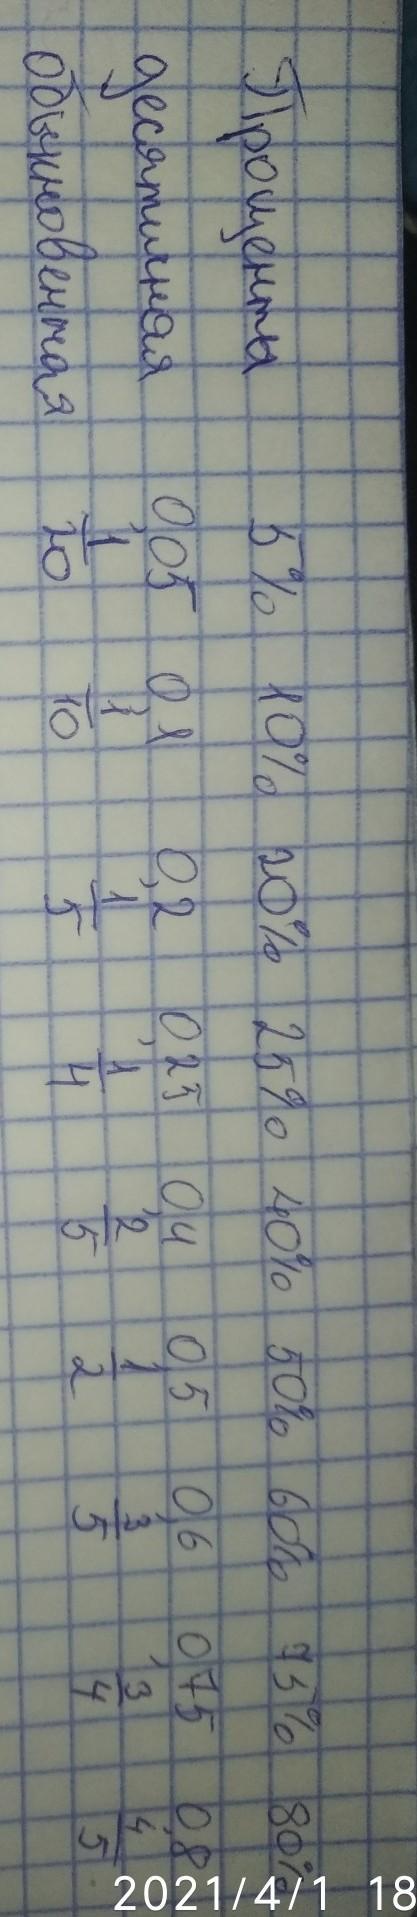 Проценты 5% 10% 20% 25% 40% 50% 60% 75% 80%
десятичная 0,05 0,1 0,2 0,25 0,4 0,5 0,6 0,75 0,8
обыкновенная 1/20 1/10 1/5 1/4 2/5 1/2 3/5 3/4 4/5
2021/4/1 18